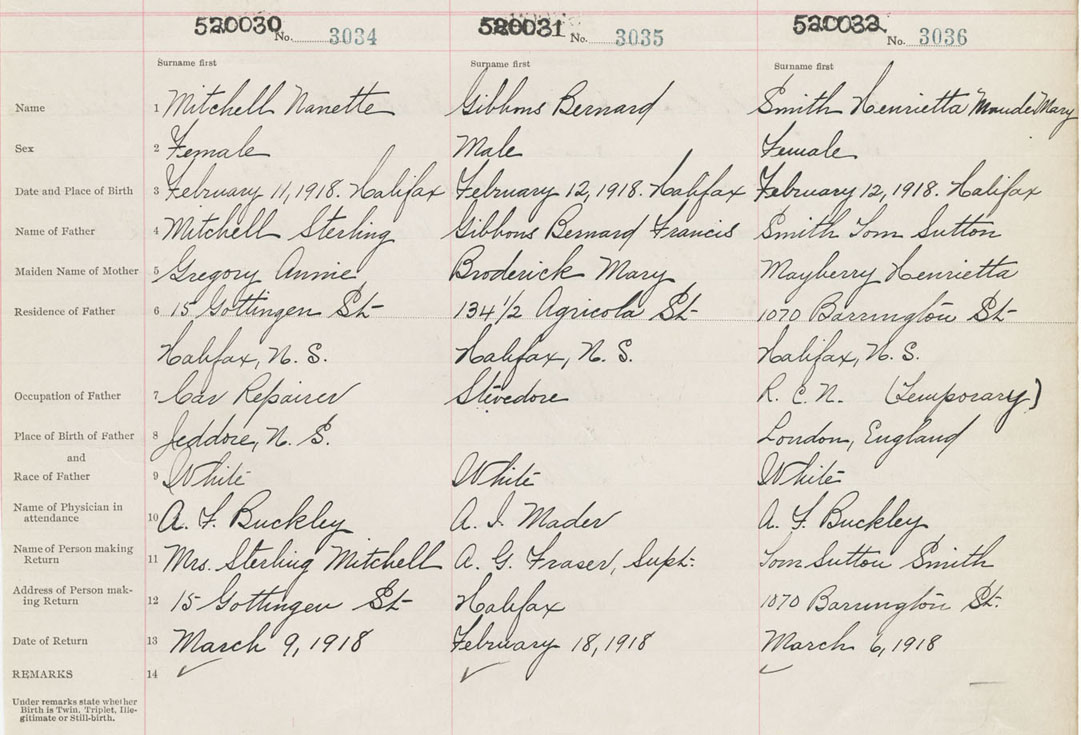 520030 No. 3034 520031 No. 3035 520032 No. 3036
Surname first Surname first Surname first
Name 1 Mitchell Nanette Gibbons Bernard Smith Henrietta Maude Mary
Sex 2 Female Male Female
Date and Place of Birth 3 February 11, 1918. Halifax February 12, 1918. Halifax February 12, 1918. Halifax
Name of Father 4 Mitchell Sterling Gibbons Bernard Francis Smith Tom Sutton
Maiden Name of Mother 5 Gregory Annie Broderick Mary Mayberry Henrietta
Residence of Father 6 15 Gottingen St 134 1/2 Agricola St 1070 Barrington St
Halifax, N. S. Halifax, N. S. Halifax, N. S.
Occupation of Father 7 Car Repairer Stevedore R. C. N. (Temporary)
Place of Birth of Father 8 Jeddore, N. S. London, England
and
Race of Father 9 White White White
Name of Physician in
attendance 10 A. F. Buckley A. I. Mader A. F. Buckley
Name of Person making
Return 11 Mrs. Sterling Mitchell A. G. Fraser, Supt. Tom Sutton Smith
Address of Person mak-
ing Return 12 15 Gottingen St Halifax 1070 Barrington St.
Date of Return 13 March 9, 1918 February 18, 1918 March 6, 1918
REMARKS 14
Under remarks state whether
Birth is Twin, Triplet, Ille-
gitimate or Still-birth.